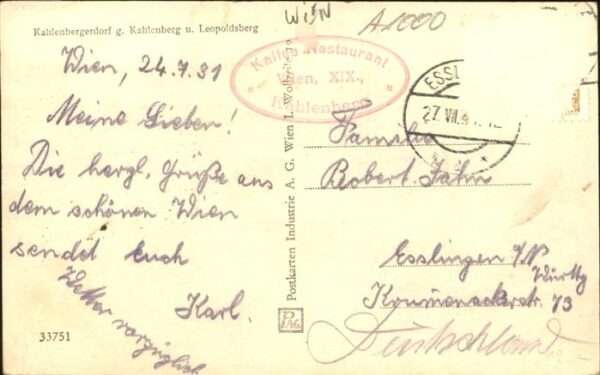 WIEN
A1000
Kahlenbergerdorf g. Kahlenberg u. Leopoldsberg
Wien, 24.7.31
Meine Lieben!
Die herzl. Grüße aus
dem schönen Wien
sendet Euch
Karl.
Wetter vorzüglich
33751
Postkarten Industrie A. G. Wien I.
PIAG
Restaurant
Wien, XIX.,
Kahlenberg
ESSL
27. VII.
Familie
Robert Jahn
Esslingen a/N
Württg
73
Deutschland